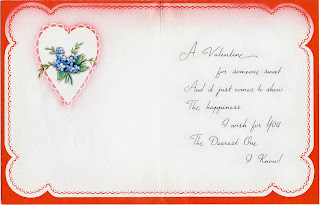 A Valentine
for someone sweet
And it just comes to show
The happiness
I wish for YOU
The Dearest One
I Know!